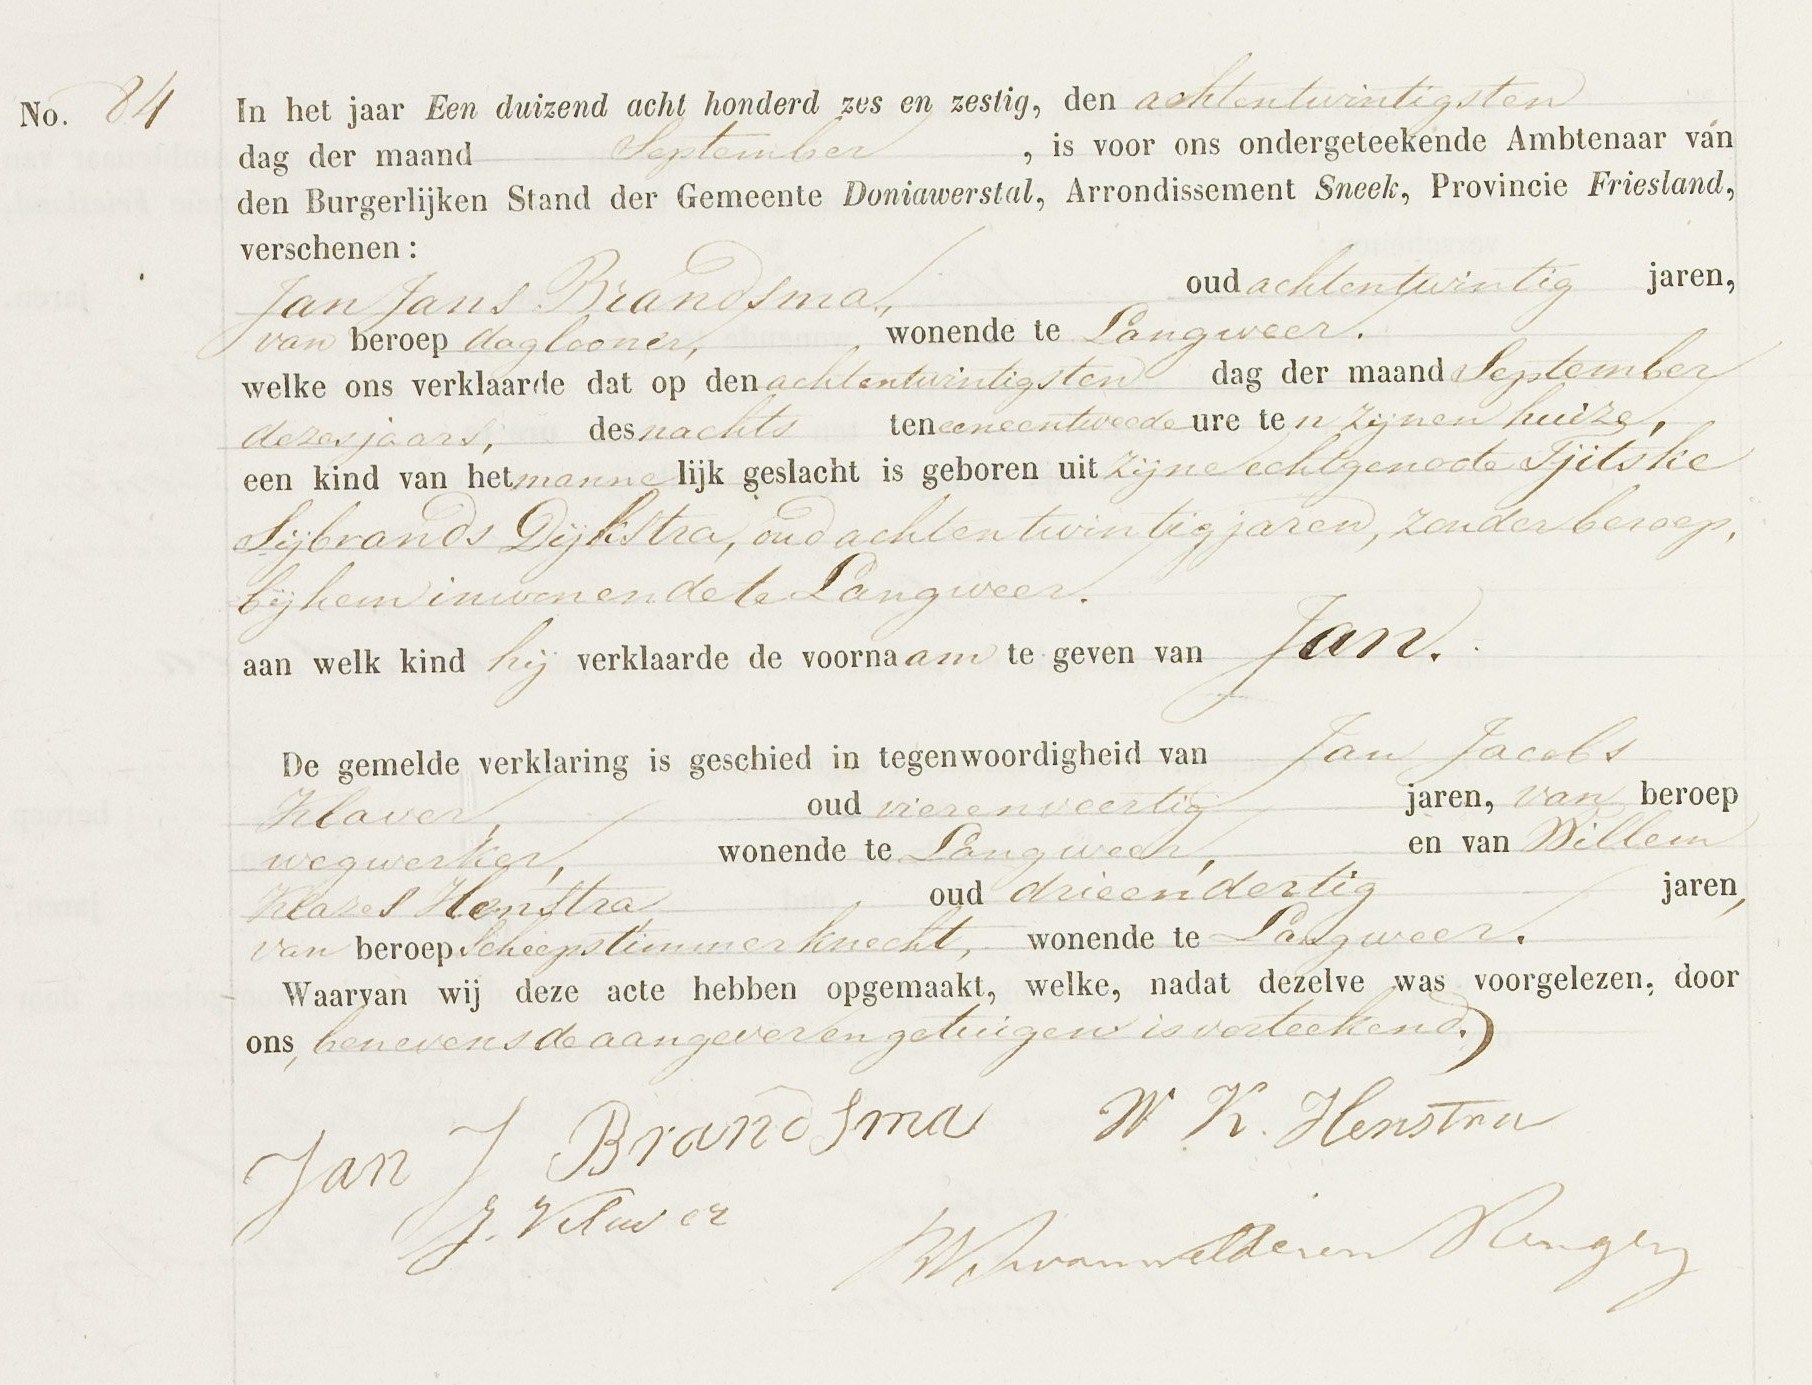 No. 84
In het jaar Een duizend acht honderd zes en zestig, den achtentwintigsten
dag der maand September, is voor ons ondergeteekende Ambtenaar van
den Burgerlijken Stand der Gemeente Doniawerstal, Arrondissement Sneek, Provincie Friesland,
verschenen:
Jan Jans Brandsma, oud achtentwintig jaren,
van beroep daglooner, wonende te Langweer.
welke ons verklaarde dat op den achtentwintigsten dag der maand September
dezes jaars, des nachts ten eeneentweede ure te n zijnen huize,
een kind van het mannelijk geslacht is geboren uit zijne echtgenoote Tjitske
Sijbrands Dijkstra, oud achtentwintig jaren, zonder beroep,
bij hem inwonende te Langweer.
aan welk kind hij verklaarde de voornaam te geven van Jan.
De gemelde verklaring is geschied in tegenwoordigheid van Jan Jacobs
Klaver, oud vierenveertig jaren, van beroep
wegwerker, wonende te Langweer, en van Willem
Klazes Henstra oud drieendertig jaren,
van beroep Scheepstimmerknecht, wonende te Langweer.
Waarvan wij deze acte hebben opgemaakt, welke, nadat dezelve was voorgelezen, door
ons, benevens de aangever en getuigen is verteekend.
Jan J Brandsma W K. Henstra
J. Klaver
van Welderen Rengers